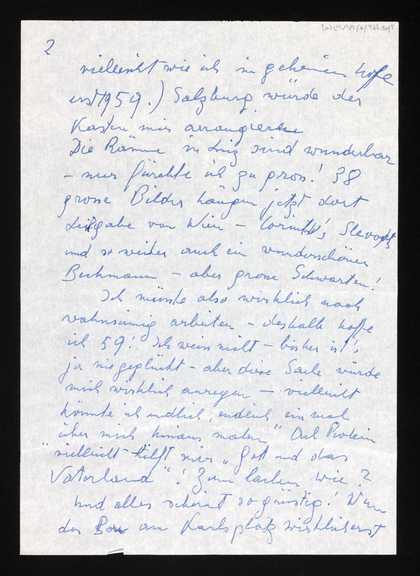 2
vielleicht wie ich im geheimen hoffe
erst 1959.) Salzburg würde der
Kasten mir arrangieren
Die Räume in Linz sind wunderbar
– nur fürchte ich zu gross! 38
grosse Bilder hängen jetzt dort
Leihgabe von Wien – Corinth's Slevogts
und so weiter auch ein wunderschöner
Beckmann – aber grosse Schwarten!
Ich müsste also wirklich noch
wahnsinnig arbeiten – deshalb hoffe
ich 59! Ich weiss nicht – bisher ist's
ja nie geglückt – aber diese Sache würde
mich wirklich anregen – vielleicht
könnte ich endlich, endlich einmal
über mich hinaus malen"
"vielleicht hilft mir "Gott und das
Vaterland"! Zum lachen wie?
Und alles scheint so günstig!
der Bau am Karlsplatz wirklich erst